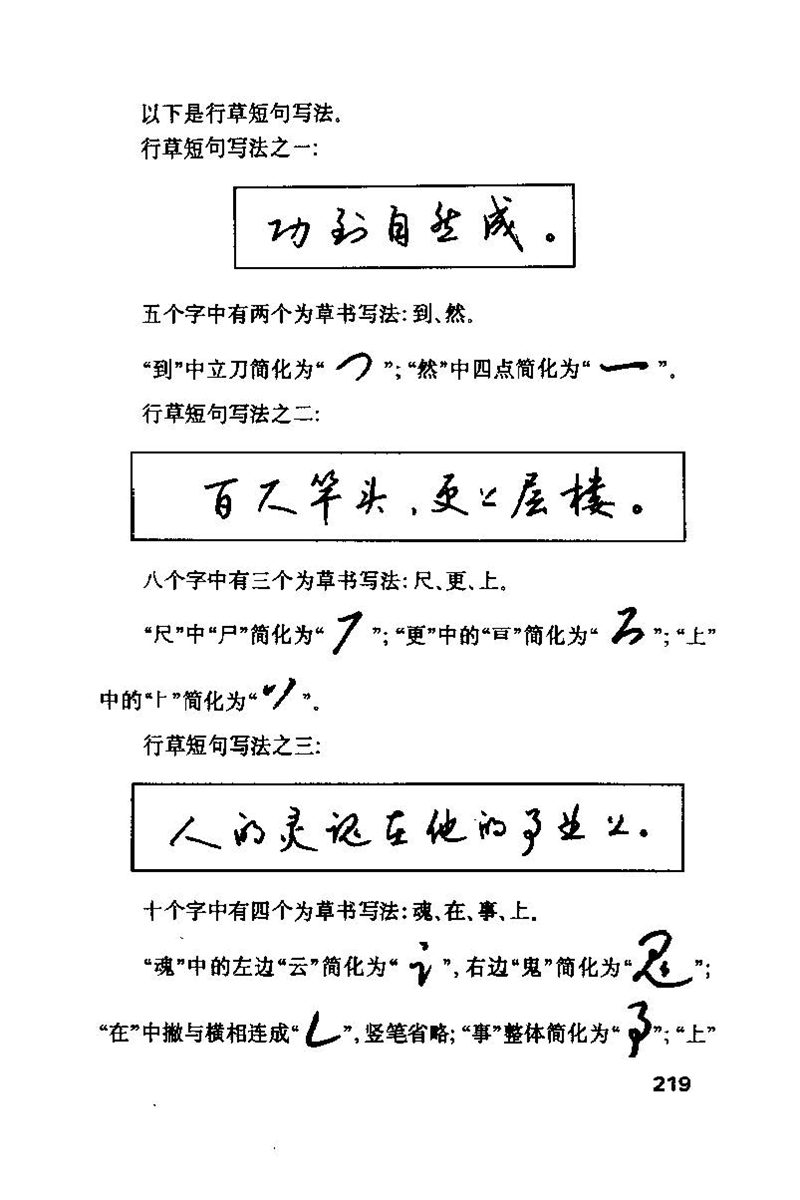 以下是行草短句写法。
行草短句写法之一:
功到自然成。
五个字中有两个为草书写法:到、然。
“到”中立刀简化为“ ”;“然”中四点简化为“ ”。
行草短句写法之二:
百尺竿头,更上层楼。
八个字中有三个为草书写法:尺、更、上。
“尺”中“尸”简化为“ ”;“更”中的“ ”简化为“ ”;“上”
中的“⺊”简化为“ ”。
行草短句写法之三:
人的灵魂在他的事业上。
十个字中有四个为草书写法:魂、在、事、上。
“魂”中的左边“云”简化为“ ”,右边“鬼”简化为“ ”;
“在”中撇与横相连成“ ”,竖笔省略;“事”整体简化为“ ”;“上”
219